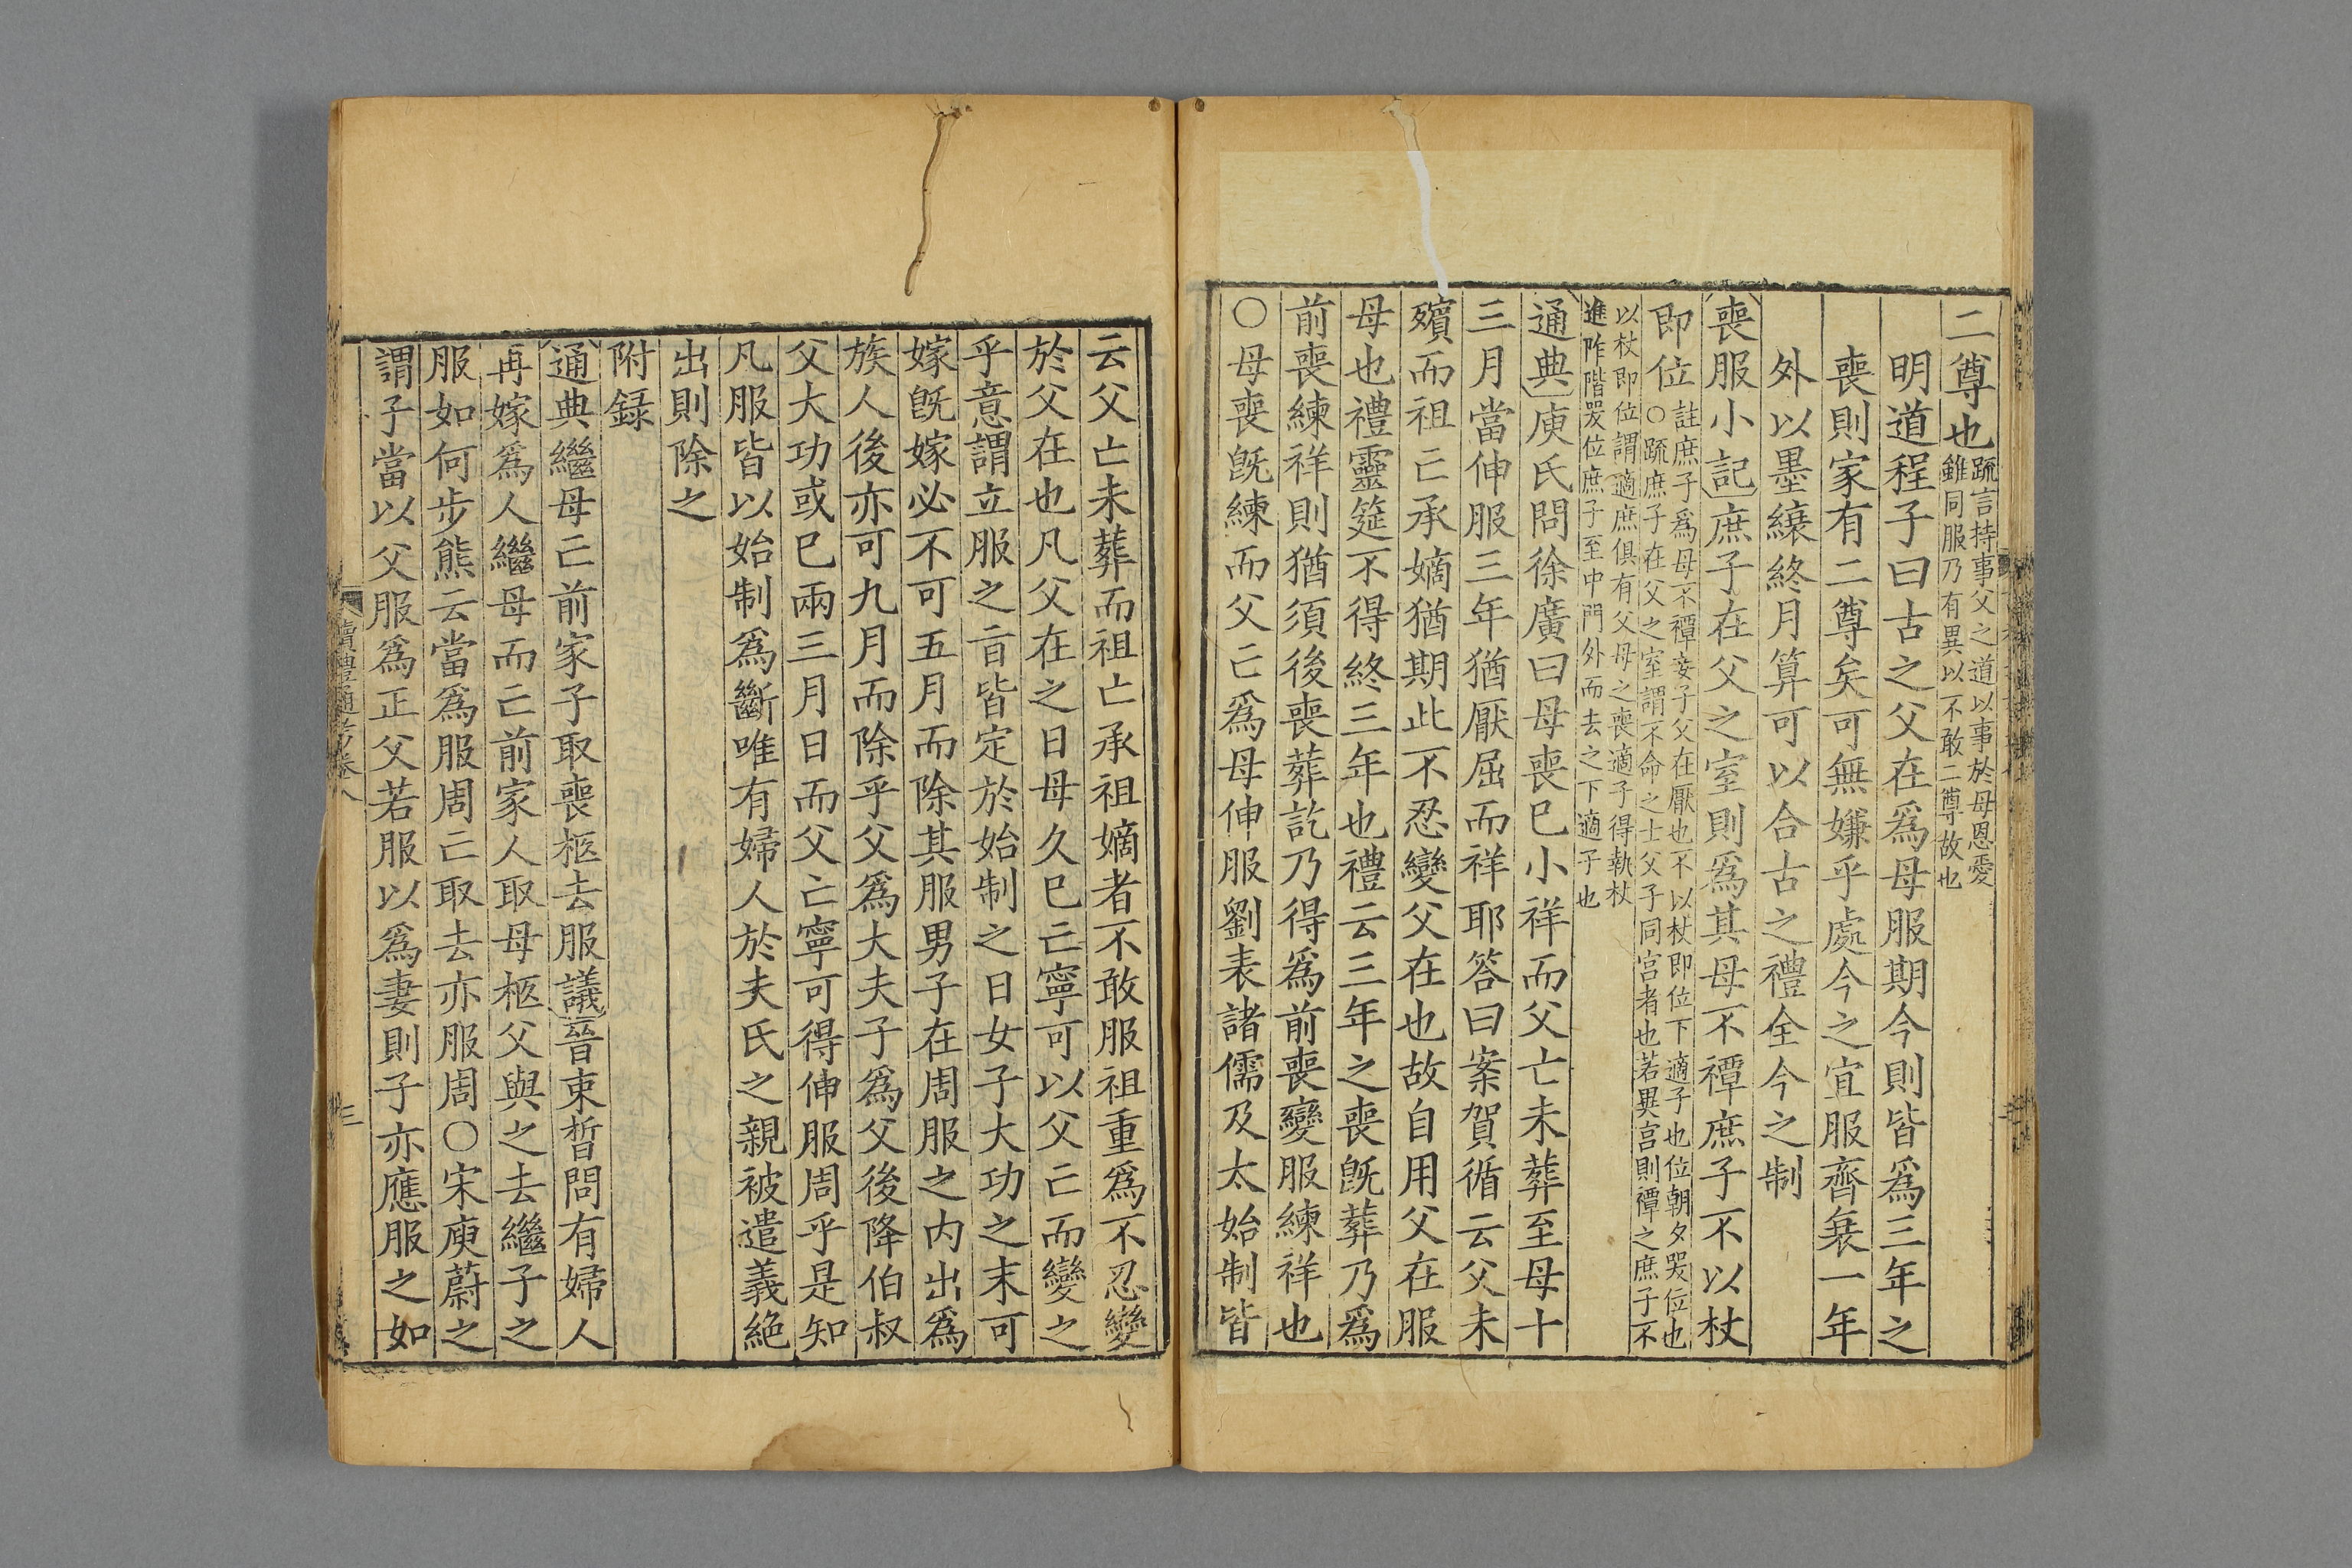 二尊也疏言持事父之道以事於母恩愛
雖同服乃有異以不敢二尊故也
明道程子曰古之父在爲母服期今則皆爲三年之
喪則家有二尊矣可無嫌乎處今之宜服齊衰一年
外以墨縗終月算可以合古之禮全今之制
喪服小記庶子在父之室則爲其母不禫庶子不以杖
即位註庶子爲母不禫妾子父在厭也不以杖即位下適子也位朝夕哭位也
○疏庶子在父之室謂不命之士父子同宮者也若異宮則禫之庶子不
以杖即位謂適庶俱有父母之喪適子得執杖
進阼階哭位庶子至中門外而去之下適子也
通典庾氏問徐廣曰母喪巳小祥而父亡未葬至母十
三月當伸服三年猶厭屈而祥耶答曰案賀循云父未
殯而祖亡承嫡猶期此不忍變父在也故自用父在服
母也禮靈筵不得終三年也禮云三年之喪旣葬乃爲
前喪練祥則猶須後喪葬訖乃得爲前喪變服練祥也
○母喪旣練而父亡爲母伸服劉表諸儒及太始制皆
云父亡未葬而祖亡承祖嫡者不敢服祖重爲不忍變
於父在也凡父在之日母久巳亡寧可以父亡而變之
乎意謂立服之㫖皆定於始制之日女子大功之末可
嫁旣嫁必不可五月而除其服男子在周服之内出爲
族人後亦可九月而除乎父爲大夫子爲父後降伯叔
父大功或巳兩三月日而父亡寧可得伸服周乎是知
凡服皆以始制爲斷唯有婦人於夫氏之親被遣義絶
出則除之
附録
通典繼母亡前家子取喪柩去服議晉束晳問有婦人
再嫁爲人繼母而亡前家人取母柩父與之去繼子之
服如何步熊云當爲服周亡取去亦服周○宋庾蔚之
謂子當以父服爲正父若服以爲妻則子亦應服之如
讀禮通考卷八
三